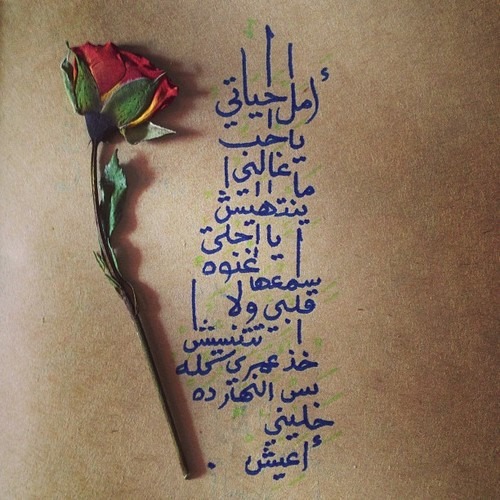 أمل حياتي
ياحب
غالي
ما
ينتهيش
يا احلى
غنوه
سمعها
قلبي ولا
تتنسيش
خذ عمري كله
بس النهارده
خليني
أعيش .